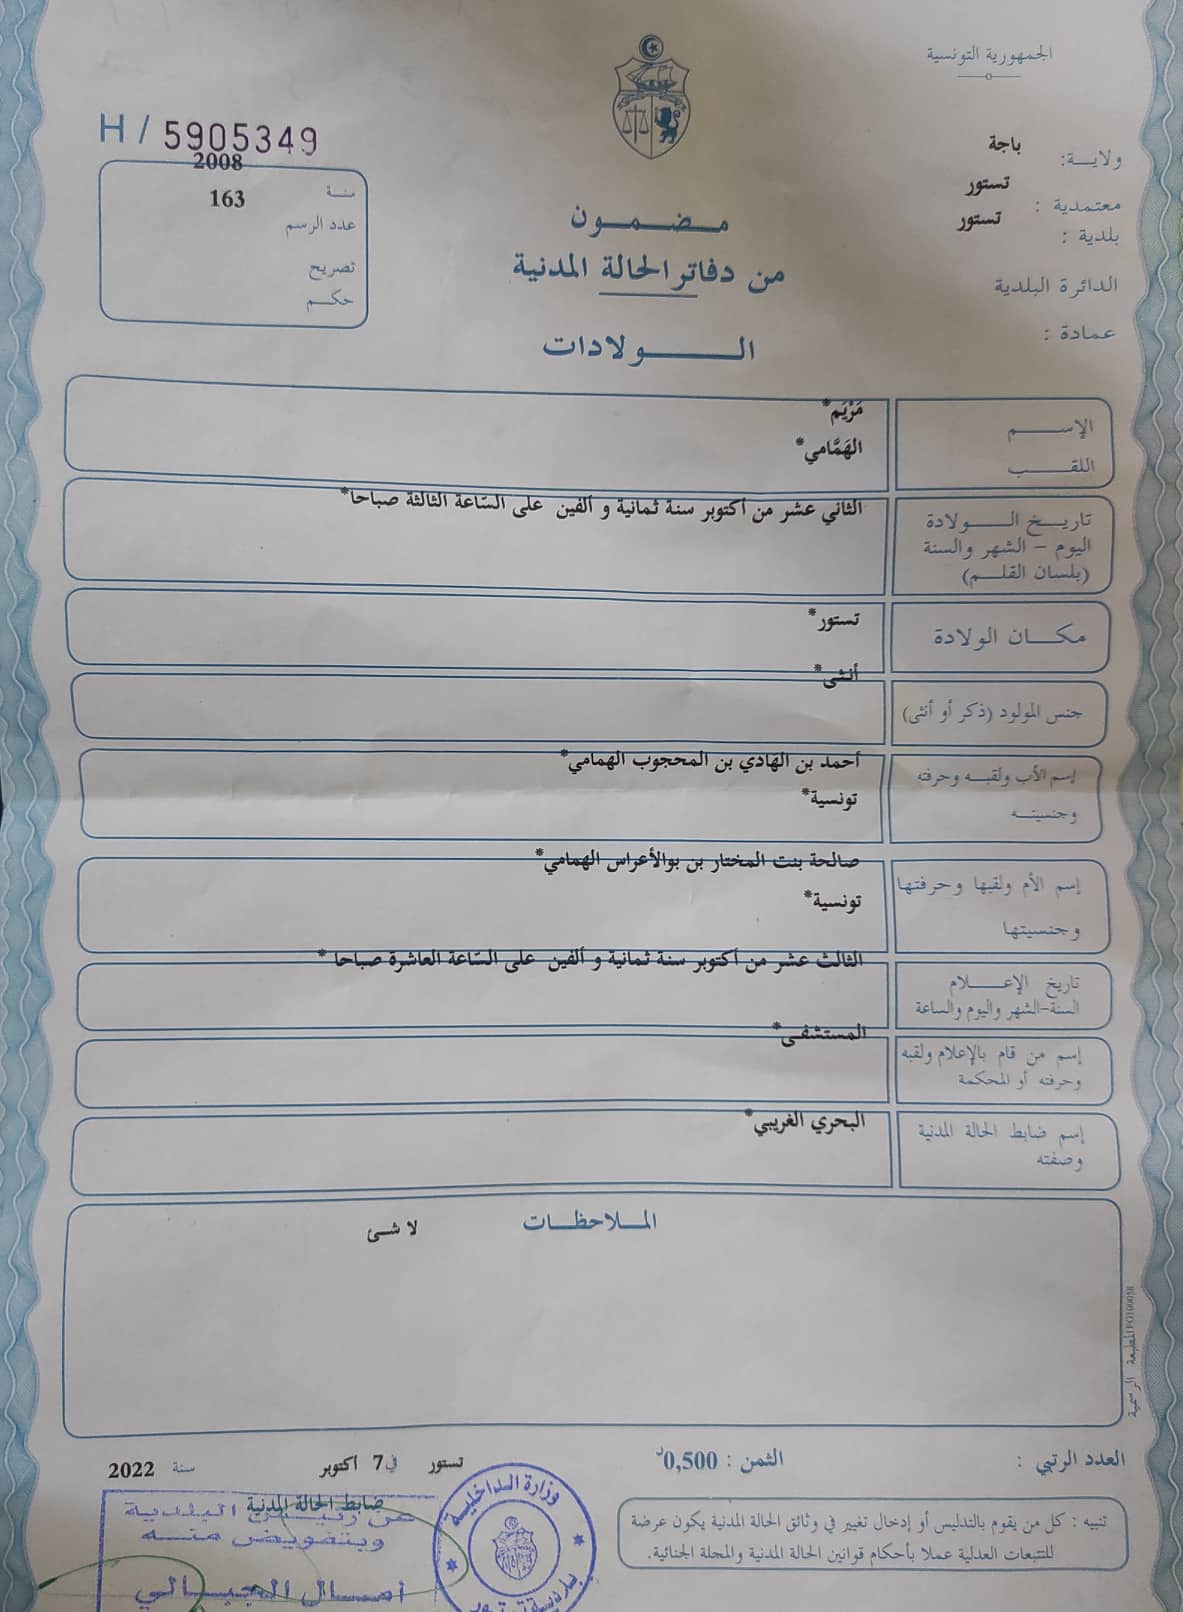 الجمهورية التونسية
H / 5905349
ولاية: باجة
معتمدية : تستور
بلدية : تستور
الدائرة البلدية
عمادة :
سنة 2008
عدد الرسم 163
تصريح
حكم
مضمون
من دفاتر الحالة المدنية
الولادات
الإسم مَرْيَم*
اللقب الهَمَّامي*
تاريخ الولادة الثاني عشر من أكتوبر سنة ثمانية و ألفين على السّاعة الثالثة صباحا*
اليوم - الشهر والسنة
(بلسان القلم)
مكان الولادة تستور*
جنس المولود (ذكر أو أنثى) أنثى*
إسم الأب ولقبه وحرفته أحمد بن الهادي بن المحجوب الهمامي*
وجنسيته تونسية*
إسم الأم ولقبها وحرفتها صالحة بنت المختار بن بوالأعراس الهمامي*
وجنسيتها تونسية*
تاريخ الإعلام الثالث عشر من أكتوبر سنة ثمانية و ألفين على السّاعة العاشرة صباحا *
السنة-الشهر واليوم والساعة
إسم من قام بالإعلام ولقبه المستشفى*
وحرفته أو المحكمة
إسم ضابط الحالة المدنية البحري الغريبي*
وصفته
الملاحظات
لا شئ
المطبعة الرسمية
العدد الرتبي :
الثمن : 0,500د
تستور في 7 اكتوبر سنة 2022
ضابط الحالة المدنية
عن رئيس البلدية
وبتفويض منه
امال الجبالي
وزارة الداخلية
بلدية تستور
تنبيه : كل من يقوم بالتدليس أو إدخال تغيير في وثائق الحالة المدنية يكون عرضة
للتتبعات العدلية عملا بأحكام قوانين الحالة المدنية والمجلة الجنائية.